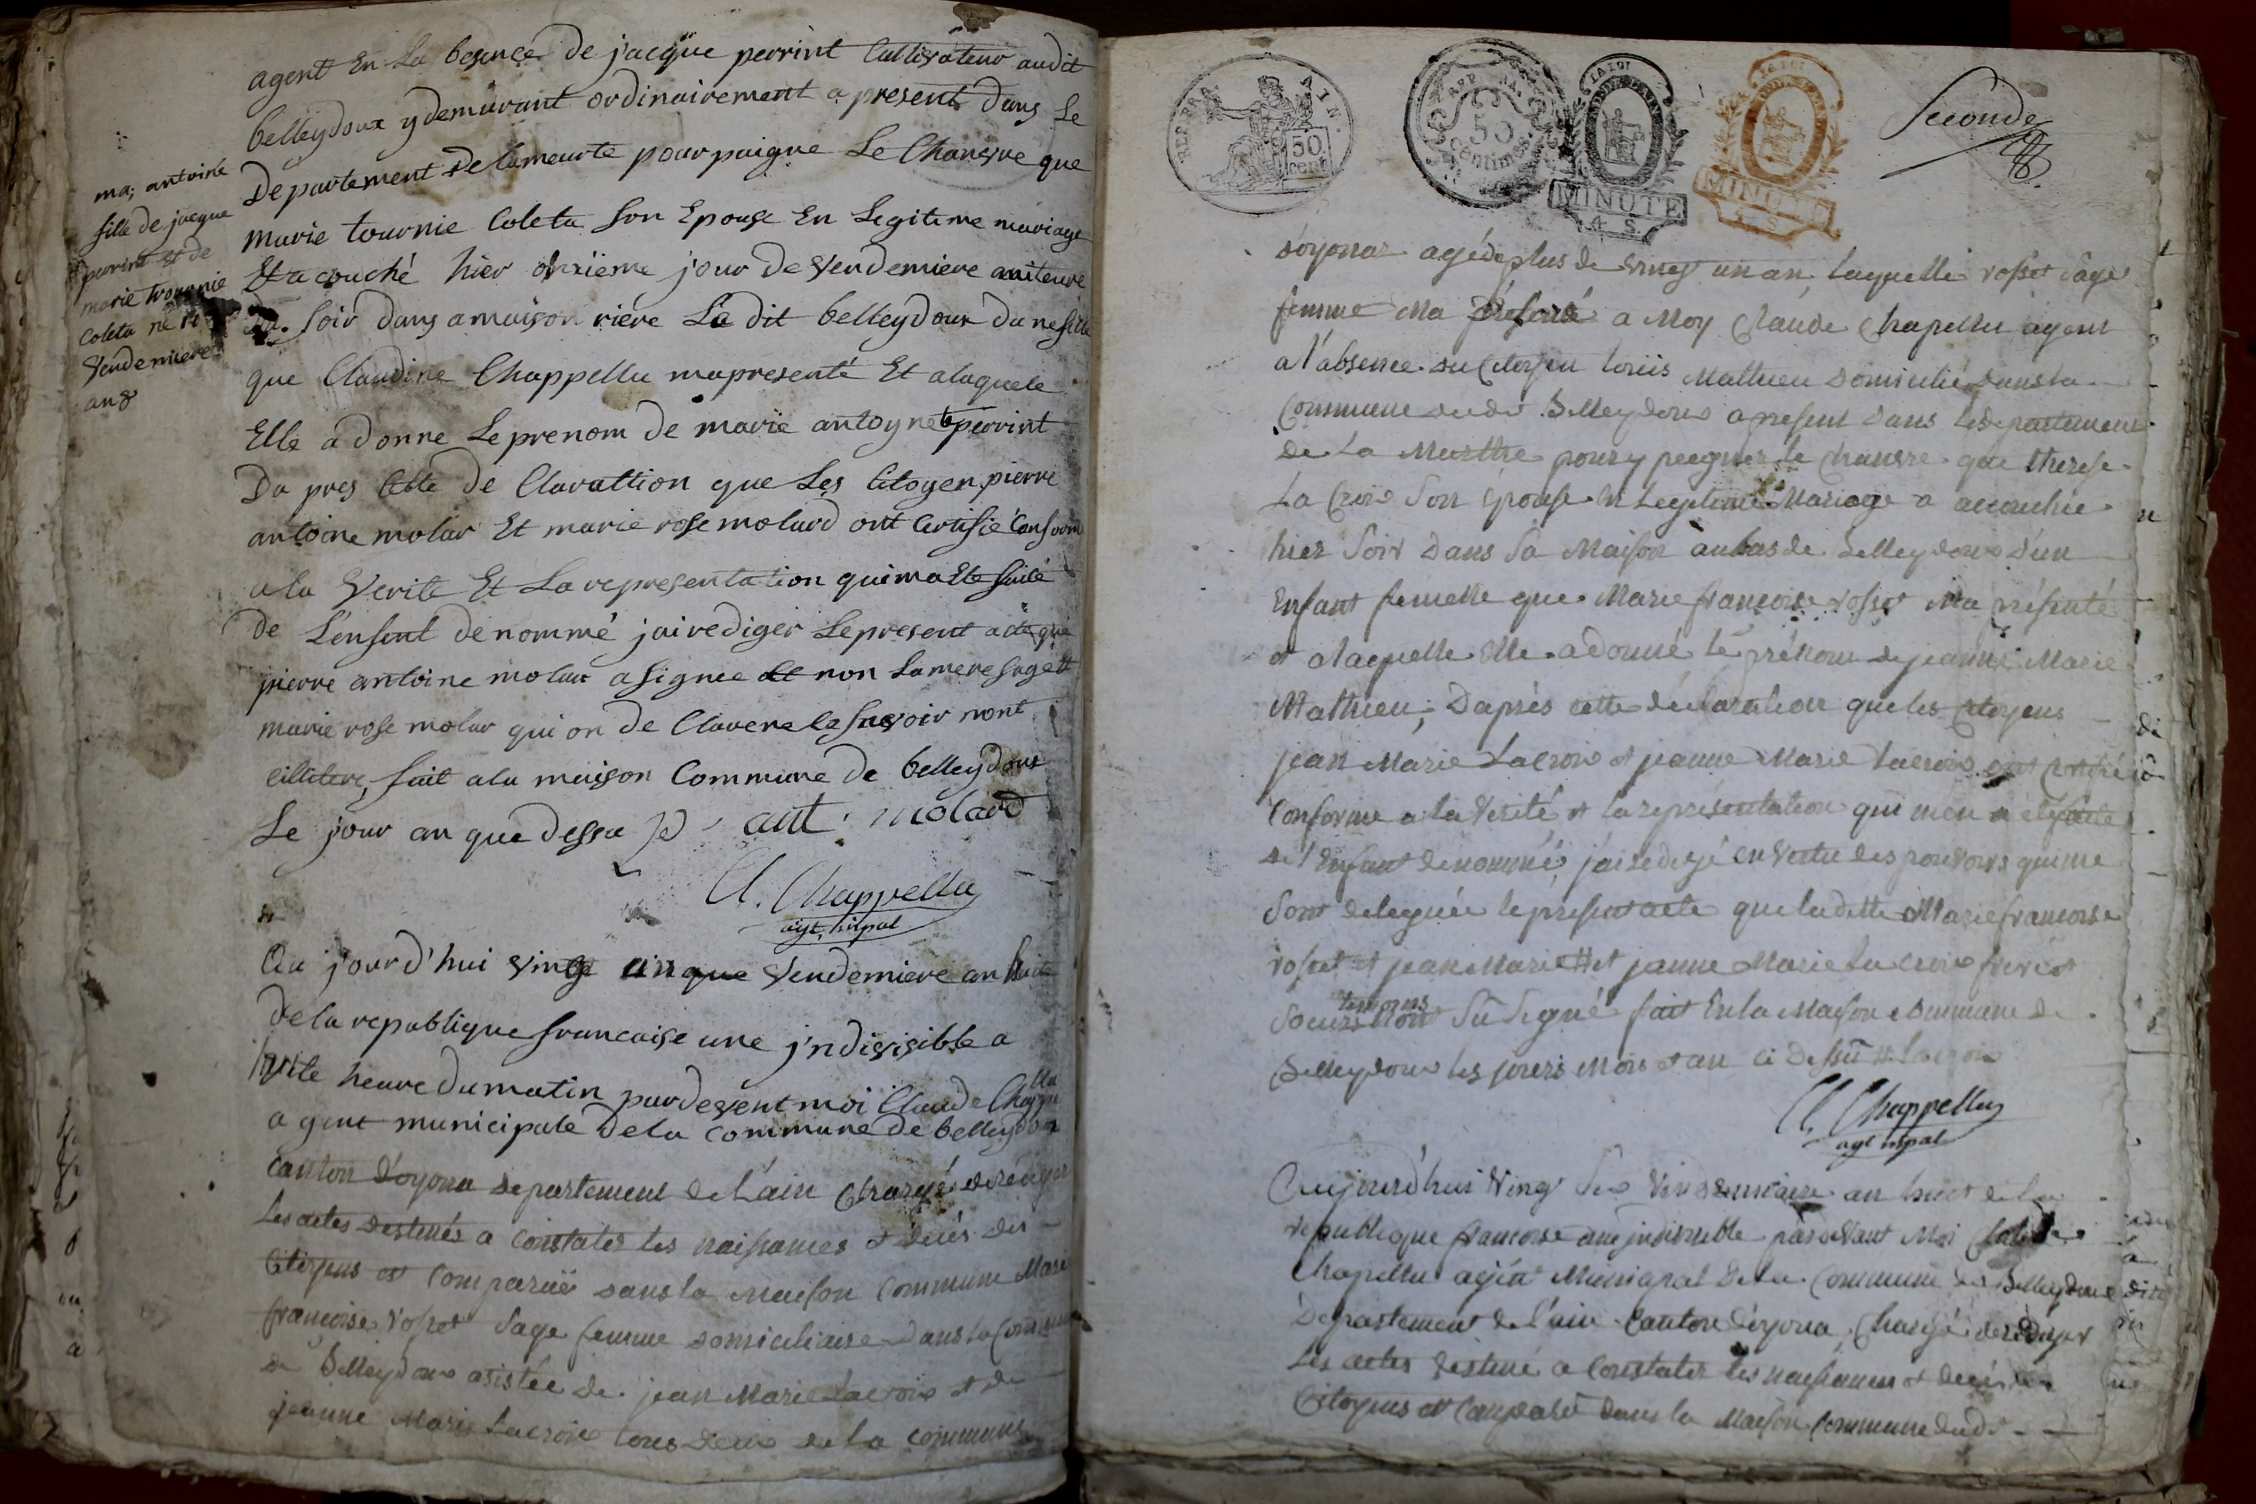 agent En La besence de jacque perrint Cultivateur audit
belleydoux y demurant ordinairement a present dans Le
Departement de lameurte pour paigne Le Chansvre que
marie tournie Coleta son Epouse En Legitime mariage
Et acouché hier onzieme jour de Vendemiere
du soir dans a maison riere Le dit belleydoux dune fille
que Claudine Chappellu mapresenté Et alaquele
Elle a donne Le prenom de marie antoynete perrint
Da pres Cette de Clarattion que Les Citoyen pierre
antoine molar Et marie rose molard ont Certifié Conform
a la Verite Et La representation qui ma Ete faite
de L'ensent denommé jai rediger Le present acte que
pierre antoine molar a signee et non La mere sage et
marie rose molar qui on de Clarere le savoir nont
eillitere, fait a la maison Commune de belleydoux
Le jour an que dessu p ant. molard
Cl. Chappellu
agt. mpal
ma; antoine
fille de jacque
perrint et de
marie tournie
Coleta né 11
Vendemiere
an 8
Au jourd'hui vingt cinque Vendemiere an huit
de la republique francaise une j'ndivisible a
huite heure du matin pardevent moi Claude Chappellu
agent municipale de la commune de belleydoux
canton d'oyona departement de L'ain Chargé de rediger
Les actes destinés a constater les naissances et décés des
Citoyens est comparue dans la maison commune Marie
françoise rosset sage femme domiciliaire dans la commune
de Belleydoux asistée de jean Marie Lacroix et de
jeanne Marie Lacroix tous deux de la commune
REP. FRA. AIN.
50 cent
50 centimes
LA LOI
MINUTE
4 S
LA LOI
MINUTE
4 S
Seconde
d'oyonax agé de plus de vingt un an, laquelle rosset sage
femme Ma présenté a Moy Claude Chapellu agent
a l'absence du Citoyen louis Mathieu domicilié dans la
Commune dudit Belleydoux apresent dans le departement
de La Murthe pour y peigner le chanvre que therese
La Croix son épouse en Legitime Mariage a accouchée
hier soir dans sa Maison au bas de Belleydoux d'un
Enfant femelle que Marie françoise rosset Ma présenté
et a laquelle elle a donné le prénom de jeanne Marie
Mathieu; D'aprés cette déclaration que les citoyens
jean Marie Lacroix et jeanne Marie Lacroix ont certifié
conforme a la Verité et la representation qui m'en a eté faite
de l'Enfant denommé, j'ai redigé en vertu des pouvoirs qui me
sont delegués le present acte que ladite Marie francoise
rosset et jean Marie et janne Marie La croix frere et
soeurs temoins n'ont su signé fait En la Maison Commune de
Belleydoux les jours mois et an ci dessu Lacroix
Cl. Chappellu
agt mpal
Aujourd'hui Vingt six Vendemiaire an huit de la
republique francoise une indivisible pardevant Moi Claude
Chapellu agent Municipal de la Commune de Belleydoux
Departement de l'ain Canton d'oyona Chargé de rediger
Les actes destiné a Constater les naissances et décés des
Citoyens est Comparu dans la Maison Commune dudit